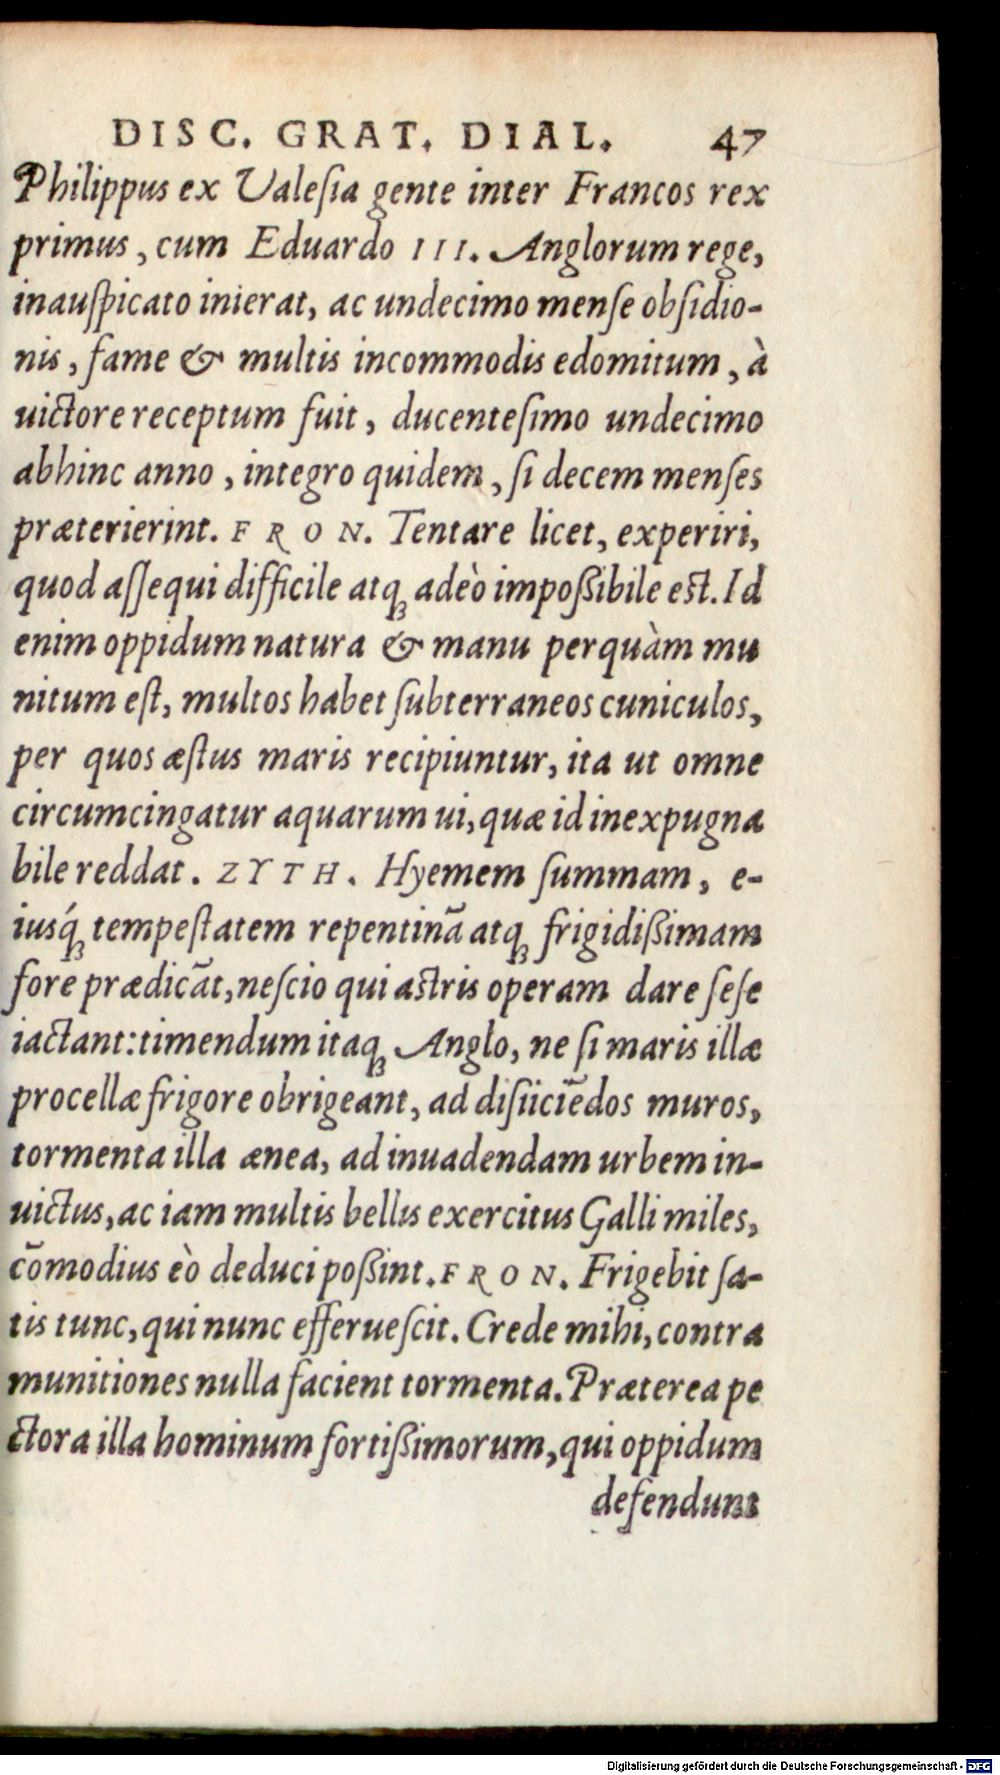 DISC. GRAT. DIAL. 47
Philippus ex Valesia gente inter Francos rex
primus, cum Eduardo III. Anglorum rege,
inauspicato inierat, ac undecimo mense obsidio-
nis, fame & multis incommodis edomitum, à
uictore receptum fuit, ducentesimo undecimo
abhinc anno, integro quidem, si decem menses
præterierint. FRON. Tentare licet, experiri,
quod assequi difficile atq; adeò impoßibile est. Id
enim oppidum natura & manu perquàm mu
nitum est, multos habet subterraneos cuniculos,
per quos æstus maris recipiuntur, ita ut omne
circumcingatur aquarum ui, quæ id inexpugna
bile reddat. ZYTH. Hyemem summam, e-
iusq́; tempestatem repentinā atq; frigidißimam
fore prædicāt, nescio qui astris operam dare sese
iactant: timendum itaq; Anglo, ne si maris illæ
procellæ frigore obrigeant, ad disiiciēdos muros,
tormenta illa ænea, ad inuadendam urbem in-
uictus, ac iam multis bellis exercitus Galli miles,
cōmodius eò deduci poßint. FRON. Frigebit sa-
tis tunc, qui nunc efferuescit. Crede mihi, contra
munitiones nulla facient tormenta. Præterea pe
ctora illa hominum fortißimorum, qui oppidum
defendunt
Digitalisierung gefördert durch die Deutsche Forschungsgemeinschaft - DFG